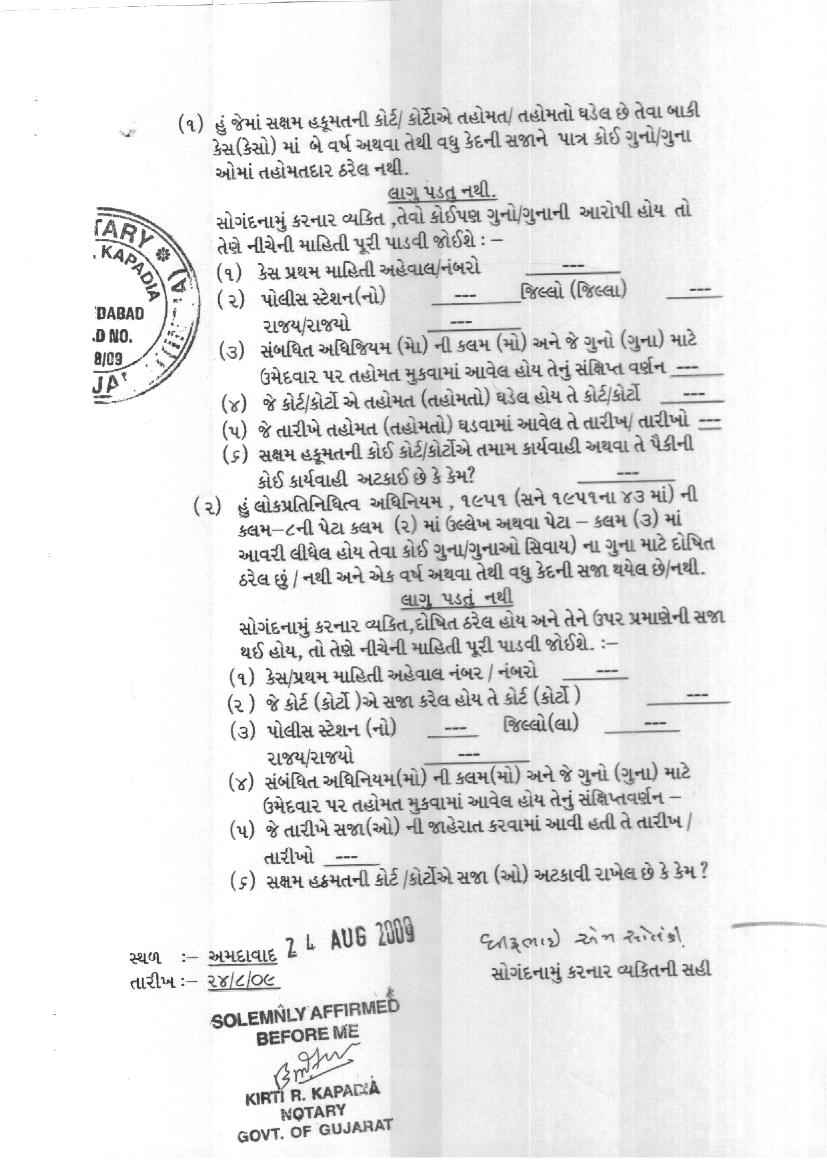 (૧) હું જેમાં સક્ષમ હકૂમતની કોર્ટ/ કોર્ટોએ તહોમત/ તહોમતો ઘડેલ છે તેવા બાકી
કેસ(કેસો) માં બે વર્ષ અથવા તેથી વધુ કેદની સજાને પાત્ર કોઈ ગુનો/ગુના
ઓમાં તહોમતદાર ઠરેલ નથી.
લાગુ પડતુ નથી.
સોગંદનામું કરનાર વ્યકિત ,તેવો કોઈપણ ગુનો/ગુનાની આરોપી હોય તો
તેણે નીચેની માહિતી પૂરી પાડવી જોઈશે : –
(૧) કેસ પ્રથમ માહિતી અહેવાલ/નંબરો ---
(૨) પોલીસ સ્ટેશન(નો) --- જિલ્લો (જિલ્લા) ---
રાજય/રાજયો ---
(૩) સંબધિત અધિજિયમ (મો) ની કલમ (મો) અને જે ગુનો (ગુના) માટે
ઉમેદવાર પર તહોમત મુકવામાં આવેલ હોય તેનું સંક્ષિપ્ત વર્ણન ---
(૪) જે કોર્ટ/કોર્ટો એ તહોમત (તહોમતો) ઘડેલ હોય તે કોર્ટ/કોર્ટો ---
(૫) જે તારીખે તહોમત (તહોમતો) ઘડવામાં આવેલ તે તારીખ/ તારીખો ---
(૬) સક્ષમ હકૂમતની કોઈ કોર્ટ/કોર્ટોએ તમામ કાર્યવાહી અથવા તે પૈકીની
કોઈ કાર્યવાહી અટકાઈ છે કે કેમ? ---
(૨) હું લોકપ્રતિનિધિત્વ અધિનિયમ , ૧૯૫૧ (સને ૧૯૫૧ના ૪૩ માં) ની
કલમ–૮ની પેટા કલમ (૨) માં ઉલ્લેખ અથવા પેટા – કલમ (૩) માં
આવરી લીધેલ હોય તેવા કોઈ ગુના/ગુનાઓ સિવાય) ના ગુના માટે દોષિત
ઠરેલ છું / નથી અને એક વર્ષ અથવા તેથી વધુ કેદની સજા થયેલ છે/નથી.
લાગુ પડતું નથી
સોગંદનામું કરનાર વ્યકિત,દોષિત ઠરેલ હોય અને તેને ઉપર પ્રમાણેની સજા
થઈ હોય, તો તેણે નીચેની માહિતી પૂરી પાડવી જોઈશે. :–
(૧) કેસ/પ્રથમ માહિતી અહેવાલ નંબર / નંબરો ---
(૨ ) જે કોર્ટ (કોર્ટો )એ સજા કરેલ હોય તે કોર્ટ (કોર્ટો ) ---
(૩) પોલીસ સ્ટેશન (નો) --- જિલ્લો(લા) ---
રાજય/રાજયો ---
(૪) સંબંધિત અધિનિયમ(મો) ની કલમ(મો) અને જે ગુનો (ગુના) માટે
ઉમેદવાર પર તહોમત મુકવામાં આવેલ હોય તેનું સંક્ષિપ્તવર્ણન –
(૫) જે તારીખે સજા(ઓ) ની જાહેરાત કરવામાં આવી હતી તે તારીખ /
તારીખો ---
(૬) સક્ષમ હક્રમતની કોર્ટ /કોર્ટોએ સજા (ઓ) અટકાવી રાખેલ છે કે કેમ ?
TARY
KAPADIA
DABAD
.D NO.
8/09
સ્થળ :– અમદાવાદ 24 AUG 2009
તારીખ :– ૨૪/૮/૦૯
સોગંદનામું કરનાર વ્યકિતની સહી
SOLEMNLY AFFIRMED
BEFORE ME
KIRTI R. KAPADIA
NOTARY
GOVT. OF GUJARAT